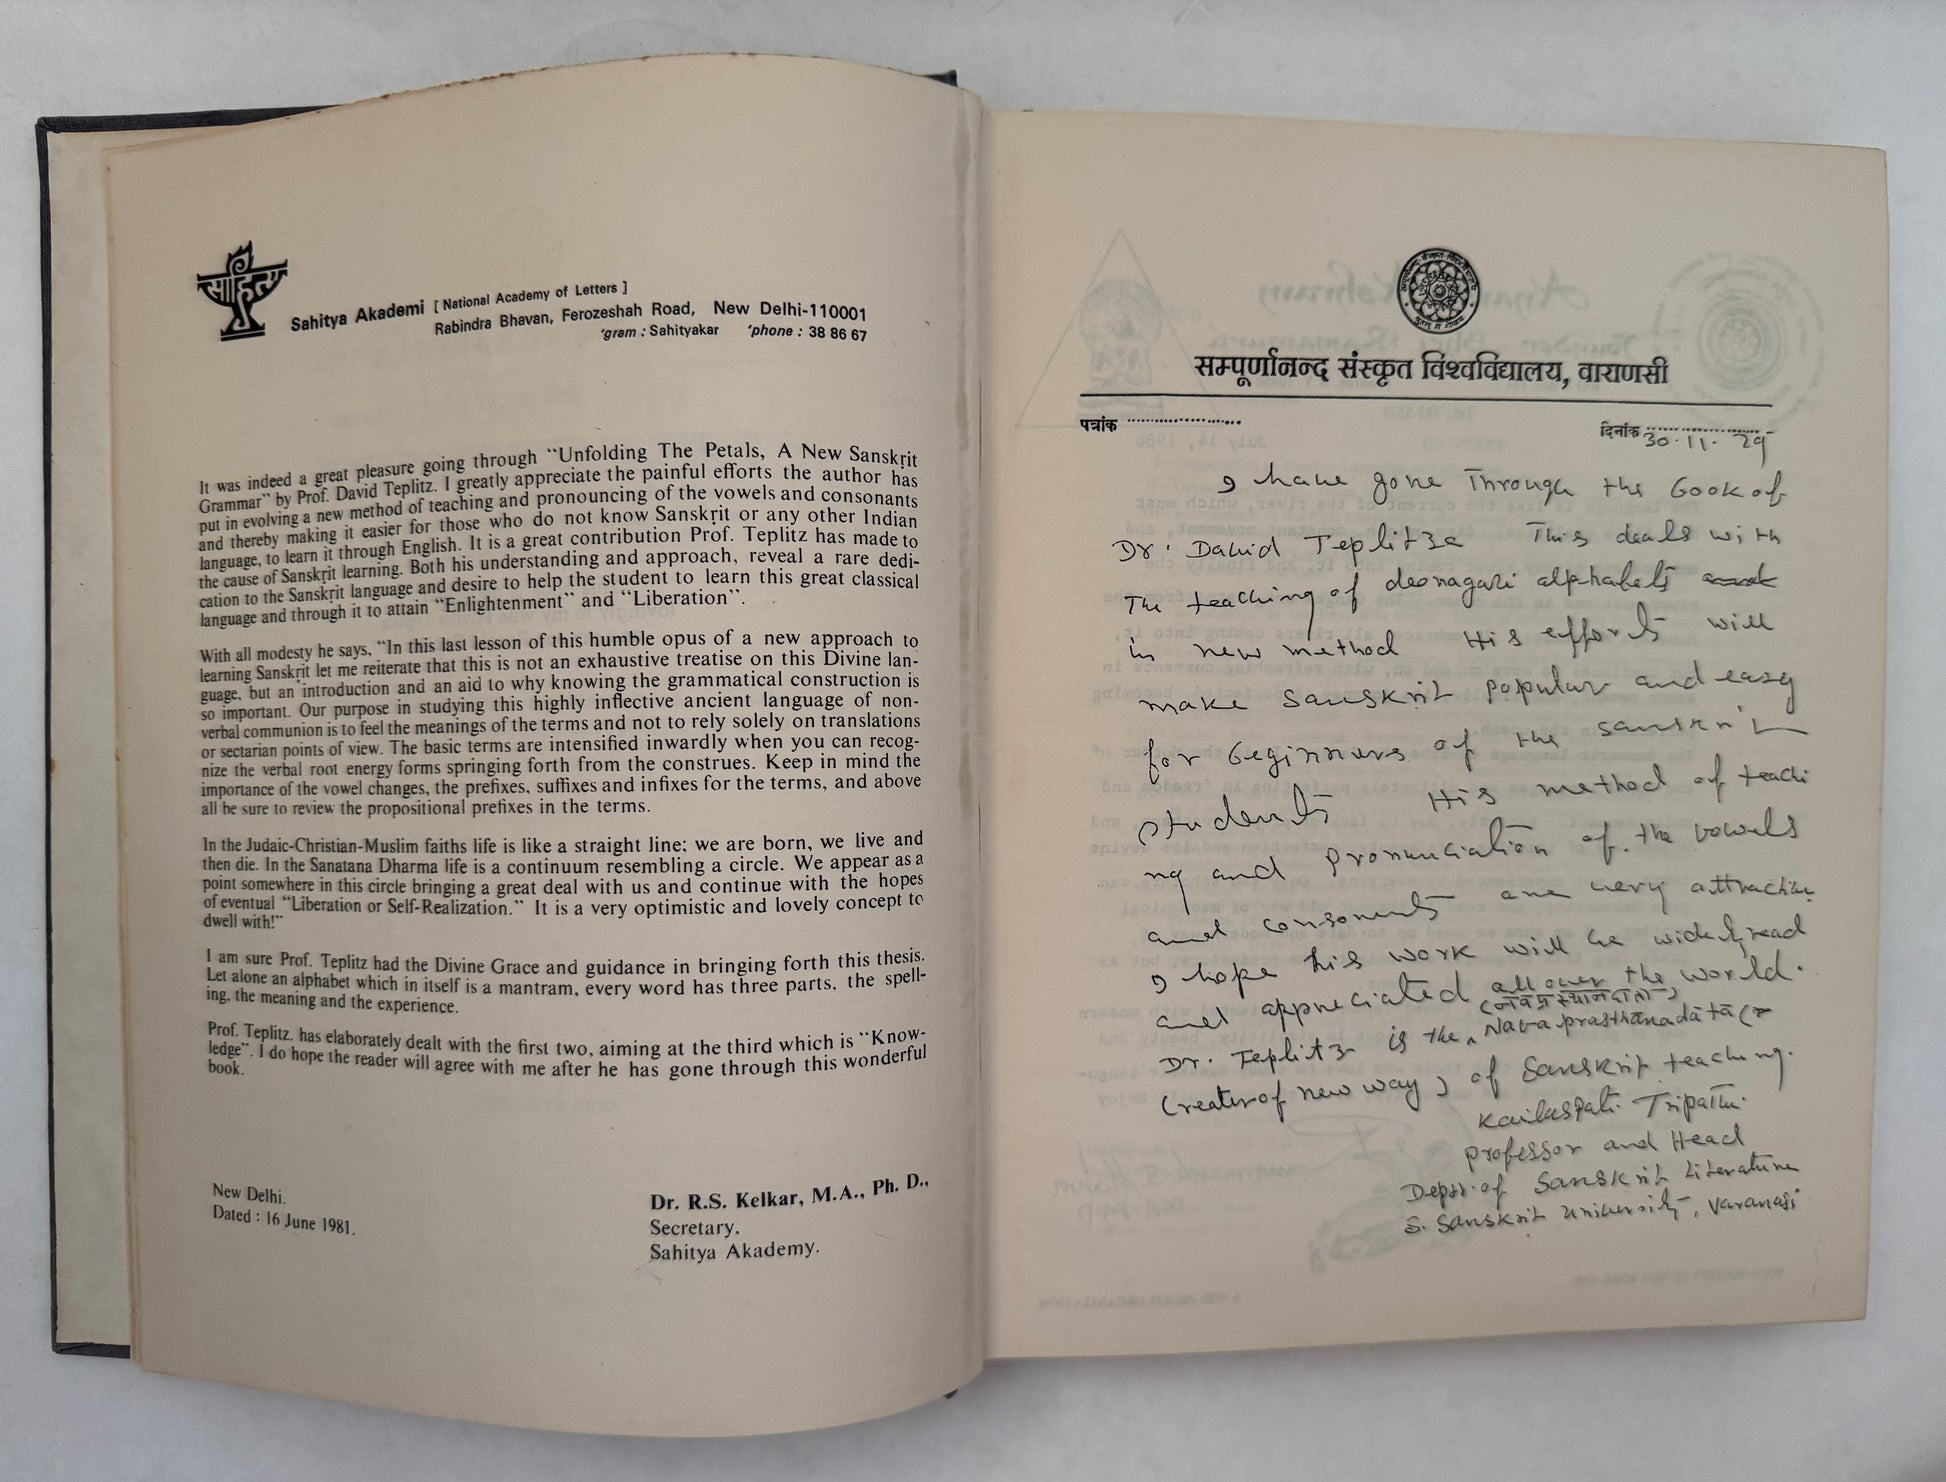 साहित्य
Sahitya Akademi [ National Academy of Letters ]
Rabindra Bhavan, Ferozeshah Road, New Delhi-110001
'gram : Sahityakar 'phone : 38 86 67
It was indeed a great pleasure going through "Unfolding The Petals, A New Sanskrit
Grammar" by Prof. David Teplitz. I greatly appreciate the painful efforts the author has
put in evolving a new method of teaching and pronouncing of the vowels and consonants
and thereby making it easier for those who do not know Sanskrit or any other Indian
language, to learn it through English. It is a great contribution Prof. Teplitz has made to
the cause of Sanskrit learning. Both his understanding and approach, reveal a rare dedi-
cation to the Sanskrit language and desire to help the student to learn this great classical
language and through it to attain "Enlightenment" and "Liberation".
With all modesty he says, "In this last lesson of this humble opus of a new approach to
learning Sanskrit let me reiterate that this is not an exhaustive treatise on this Divine lan-
guage, but an introduction and an aid to why knowing the grammatical construction is
so important. Our purpose in studying this highly inflective ancient language of non-
verbal communion is to feel the meanings of the terms and not to rely solely on translations
or sectarian points of view. The basic terms are intensified inwardly when you can recog-
nize the verbal root energy forms springing forth from the construes. Keep in mind the
importance of the vowel changes, the prefixes, suffixes and infixes for the terms, and above
all be sure to review the propositional prefixes in the terms.
In the Judaic-Christian-Muslim faiths life is like a straight line; we are born, we live and
then die. In the Sanatana Dharma life is a continuum resembling a circle. We appear as a
point somewhere in this circle bringing a great deal with us and continue with the hopes
of eventual "Liberation or Self-Realization." It is a very optimistic and lovely concept to
dwell with!"
I am sure Prof. Teplitz had the Divine Grace and guidance in bringing forth this thesis.
Let alone an alphabet which in itself is a mantram, every word has three parts, the spell-
ing, the meaning and the experience.
Prof. Teplitz. has elaborately dealt with the first two, aiming at the third which is "Know-
ledge". I do hope the reader will agree with me after he has gone through this wonderful
book.
New Delhi.
Dated : 16 June 1981.
Dr. R.S. Kelkar, M.A., Ph. D.,
Secretary,
Sahitya Akademy.
सम्पूर्णानन्द संस्कृत विश्वविद्यालय, वाराणसी
पत्रांक
दिनांक 30.11.79
I have gone Through the book of
Dr. David Teplitze This deals with
The teaching of deonagari alphabets
in new method His efforts will
make Sanskrit popular and easy
for beginners of the sanskrit
students His method of teachi
ng and pronunciation of the vowels
and consonents are very attractive
I hope his work will be widely read
and appreciated all over the world.
(नवप्रस्थानदाता)
Dr. Teplitz is the Nava prasthānadātā (
Creater of new way) of Sanskrit teaching.
Kailaspati Tripathi.
professor and Head
Deptt. of Sanskrit Literature
S. Sanskrit University, Varanasi